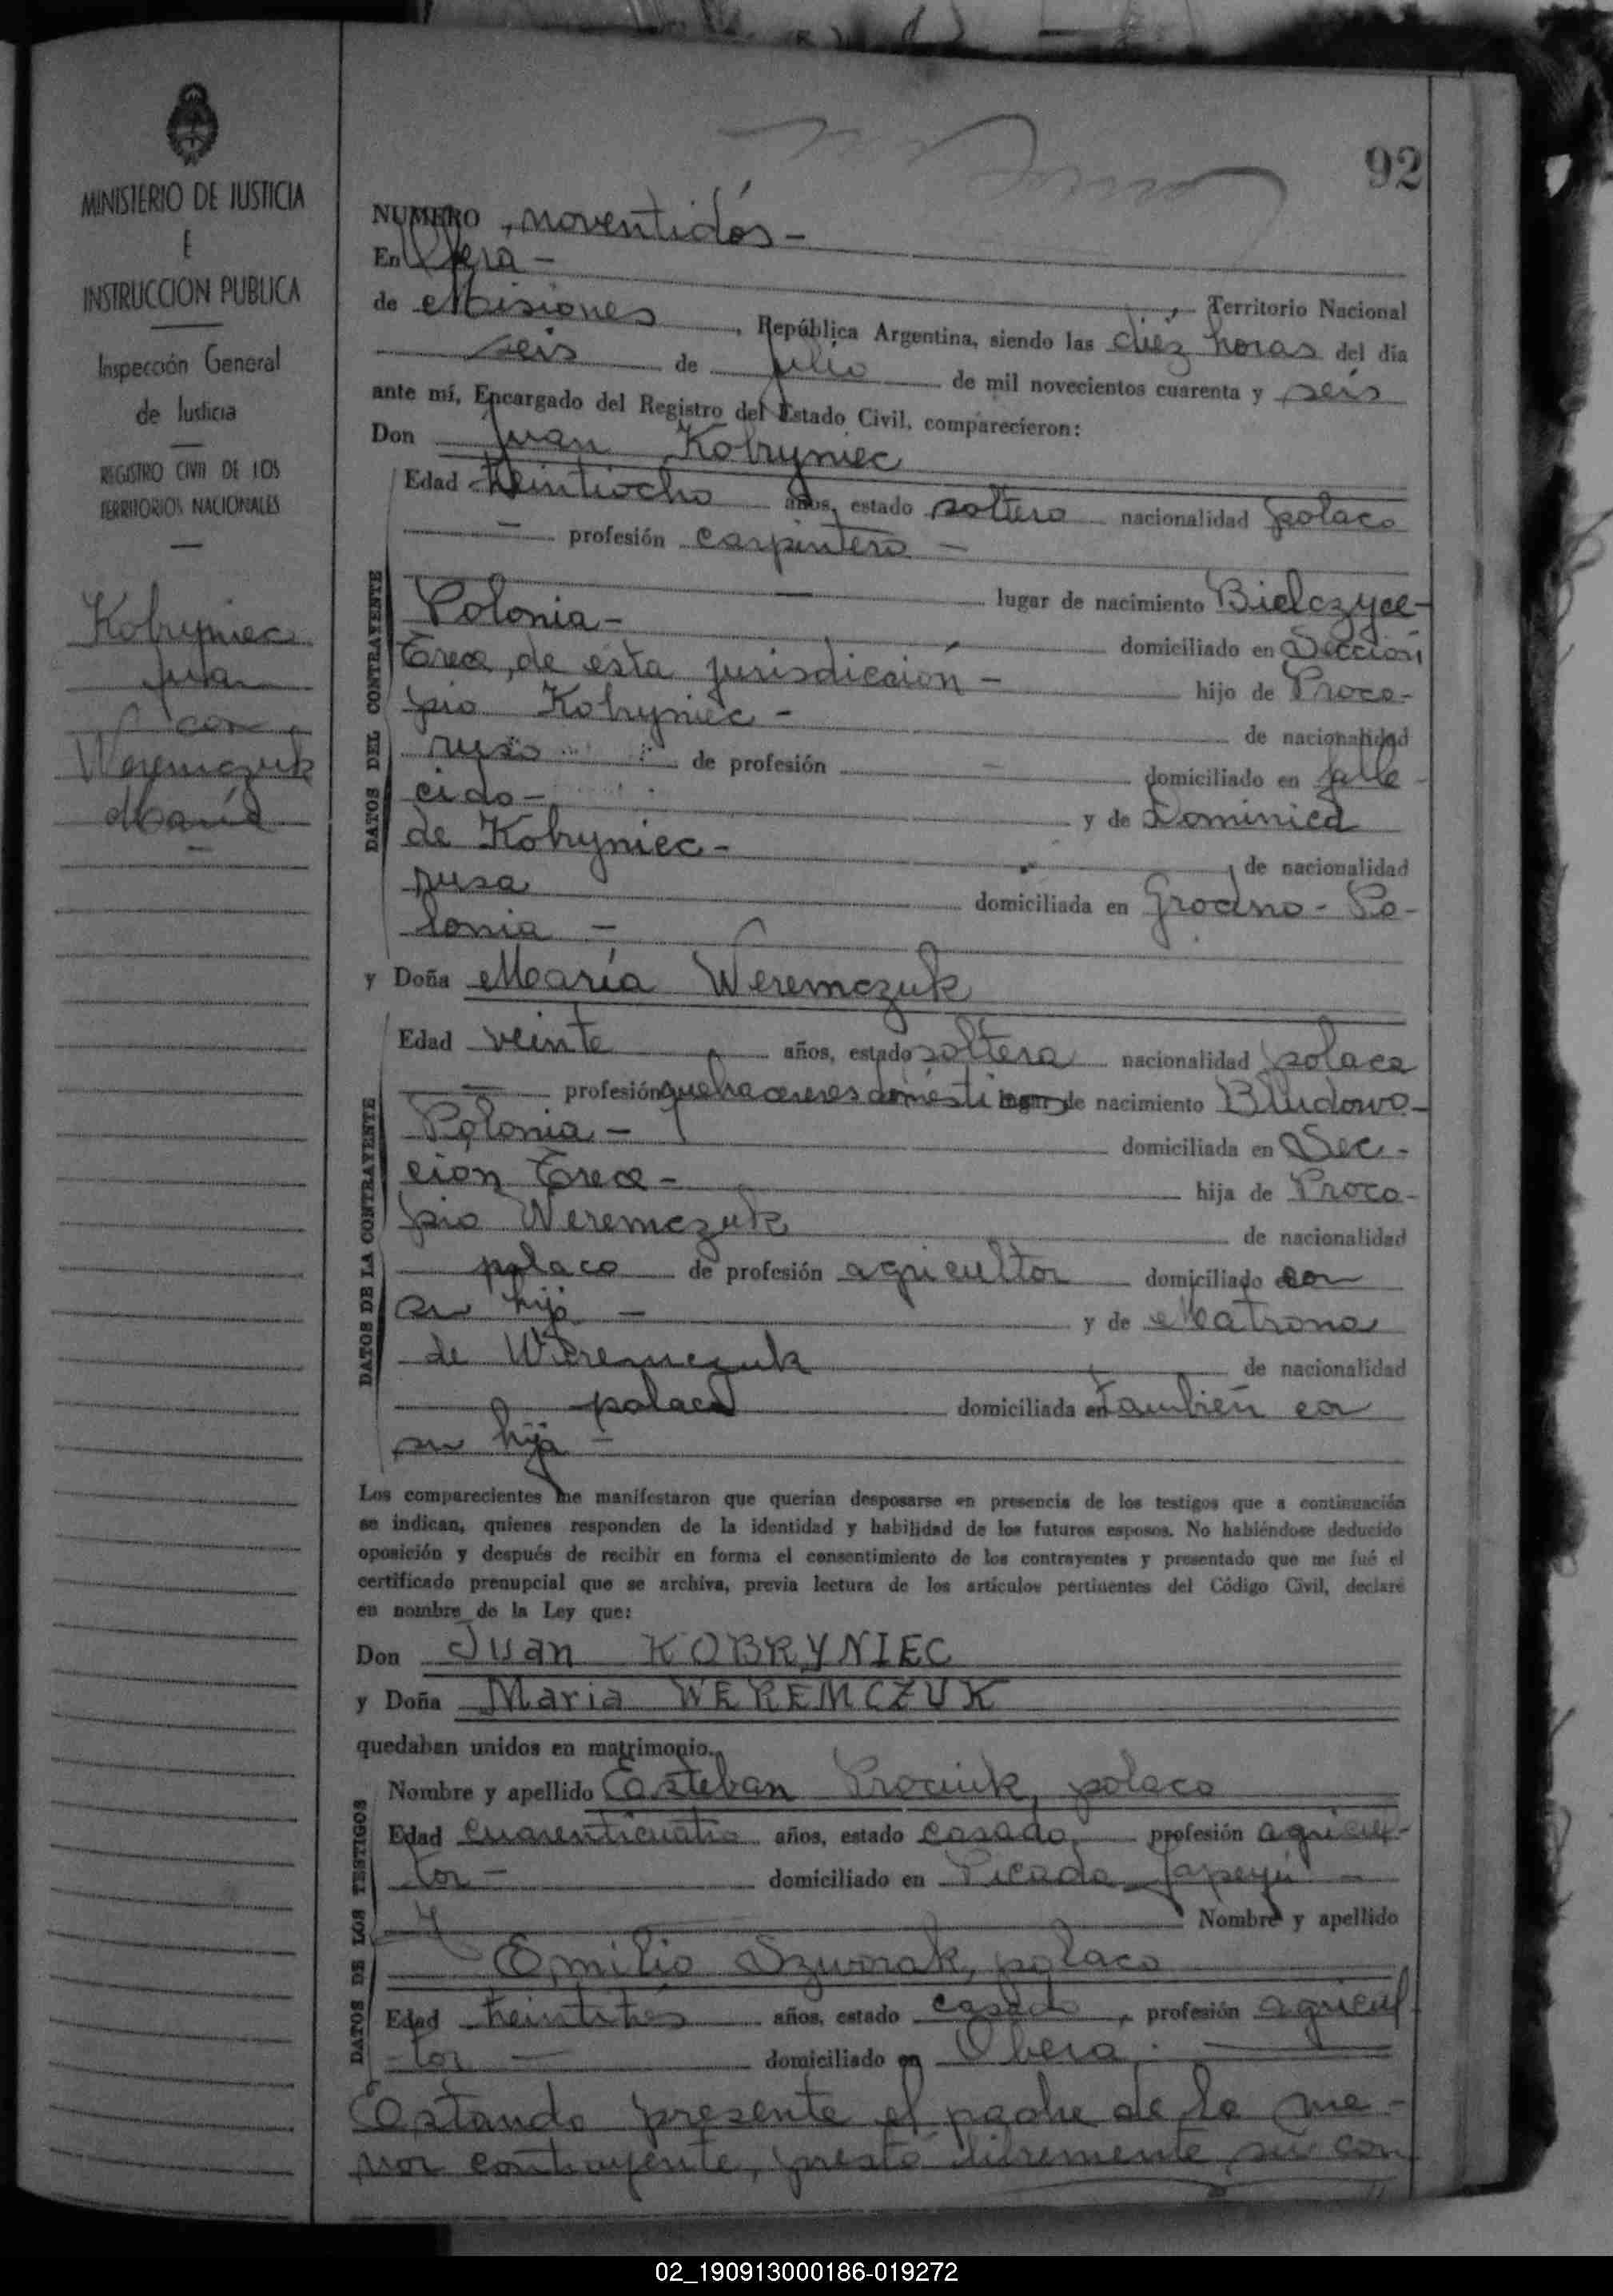 92
MINISTERIO DE JUSTICIA
E
INSTRUCCION PUBLICA
Inspección General
de Justicia
REGISTRO CIVIL DE LOS
TERRITORIOS NACIONALES
Kobryniec
Juan
con
Weremczuk
María
NUMERO noventidós -
En Obera -
, Territorio Nacional
de Misiones , República Argentina, siendo las diez horas del día
seis de julio de mil novecientos cuarenta y seis
ante mí, Encargado del Registro del Estado Civil, comparecieron:
Don Juan Kobryniec
DATOS DEL CONTRAYENTE
Edad treintiocho años, estado soltero nacionalidad polaco
— profesión carpintero —
— lugar de nacimiento Bielczyce -
Polonia - domiciliado en Sección
Trece, de esta jurisdicción - hijo de Proco-
pio Kobryniec - de nacionalidad
ruso de profesión — domiciliado en falle-
cido - y de Dominica
de Kobryniec - de nacionalidad
rusa domiciliada en Grodno - Po-
lonia -
y Doña María Weremczuk
DATOS DE LA CONTRAYENTE
Edad veinte años, estado soltera nacionalidad polaca
— profesión quehaceres domésti lugar de nacimiento Bludowo -
Polonia - domiciliada en Sec-
ción Trece - hija de Proco-
pio Weremczuk de nacionalidad
polaco de profesión agricultor domiciliado con
su hija - y de Matrona
de Weremczuk de nacionalidad
polaca domiciliada en también con
su hija -
Los comparecientes me manifestaron que querían desposarse en presencia de los testigos que a continuación
se indican, quienes responden de la identidad y habilidad de los futuros esposos. No habiéndose deducido
oposición y después de recibir en forma el consentimiento de los contrayentes y presentado que me fué el
certificado prenupcial que se archiva, previa lectura de los artículos pertinentes del Código Civil, declaré
en nombre de la Ley que:
Don Juan KOBRYNIEC
y Doña Maria WEREMCZUK
quedaban unidos en matrimonio.
DATOS DE LOS TESTIGOS
Nombre y apellido Esteban Prociuk, polaco
Edad cuarenticuatro años, estado casado, profesión agricul-
tor - domiciliado en Picada Yapeyú -
y Nombre y apellido
Emilio polaco
Edad treintitrés años, estado casado, profesión agricul-
tor - domiciliado en Obera.
Estando presente el padre de la me-
nor contrayente, prestó libremente su con
02_190913000186-019272